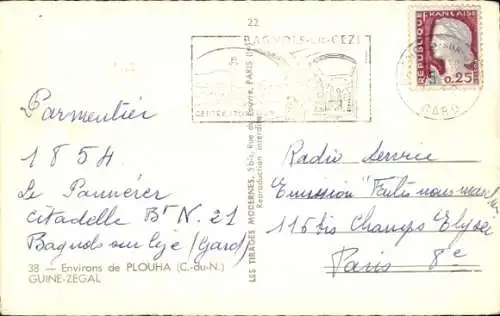 22
BAGNOLS-sur-CEZE
RÉPUBLIQUE FRANÇAISE
0,25
GARD
Parmentier
1854
Le Pannérer
citadelle Bt N. 21
Bagnols sur Cèje (Gard)
38 — Environs de PLOUHA (C.-du-N.)
GUINE-ZEGAL
LES TIRAGES MODERNES, 5 bis, Rue du Louvre, PARIS
Reproduction interdite
Radio Service
Emission "Faites nous
115 bis Champs Elysée
Paris 8e